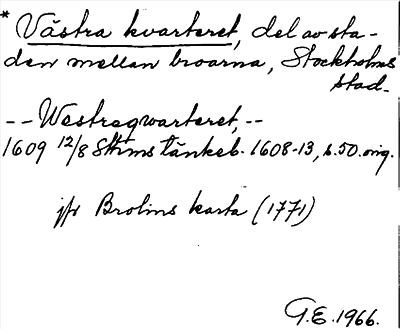 * Västra kvarteret, del av sta-
den mellan broarna, Stockholms
stad.
-- Westreqwarteret, --
1609 12/8 Sthms tänkeb. 1608-13, s. 50. orig.
jfr Brolins karta (1771)
G.E. 1966.